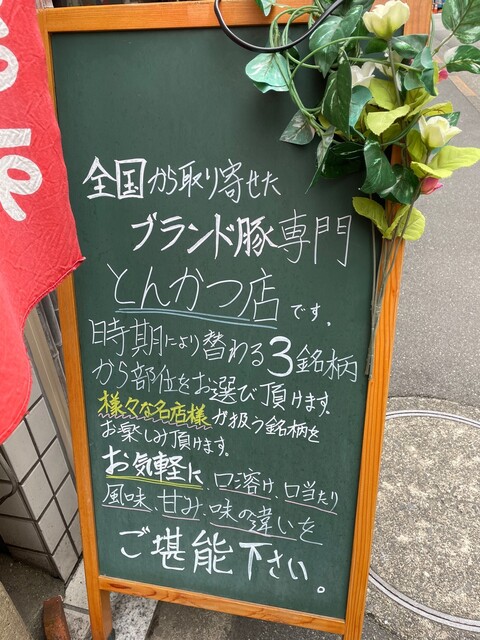 全国から取り寄せた
ブランド豚専門
とんかつ店です。
時期により替わる3銘柄
から部位をお選び頂けます。
様々な名店様が扱う銘柄を
お楽しみ頂けます。
お気軽に、口溶け、口当たり
風味、甘み、味の違いを
ご堪能下さい。